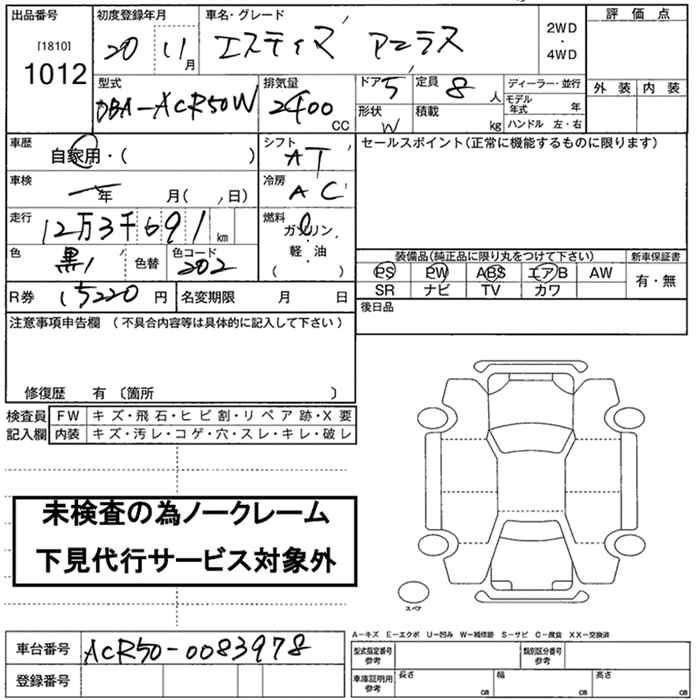 出品番号 初度登録年月 車名・グレード 評価点
[1810] 1012 20 11月 エスティマ アエラス 2WD・4WD
型式 排気量 ドア 5 定員 8人 ディーラー・並行 外装 内装
DBA-ACR50W 2400CC 形状 W 積載 kg モデル年式 年 ハンドル 左・右
車歴 自家用・( ) シフト AT セールスポイント(正常に機能するものに限ります)
車検 年 月( , 日) 冷房 AC
走行 12万3千691km 燃料 ガソリン・軽・油 ( )
色 黒 色替 色コード 202 装備品(純正品に限り丸をつけて下さい) 新車保証書
PS PW ABS エアB AW 有・無
SR ナビ TV カワ
R券 15220円 名変期限 月 日 後日品
注意事項申告欄 (不具合内容等は具体的に記入して下さい)
修復歴 有 〔箇所 〕
検査員 FW キズ・飛石・ヒビ割・リペア跡・X要
記入欄 内装 キズ・汚レ・コゲ・穴・スレ・キレ・破レ
未検査の為ノークレーム
下見代行サービス対象外
スペア
A-キズ E-エクボ U-凹み W-補修跡 S-サビ C-腐食 XX-交換済
車台番号 ACR50-0083978 型式指定番号 参考 類別区分番号 参考
登録番号 車庫証明用 参考 長さ cm 幅 cm 高さ cm